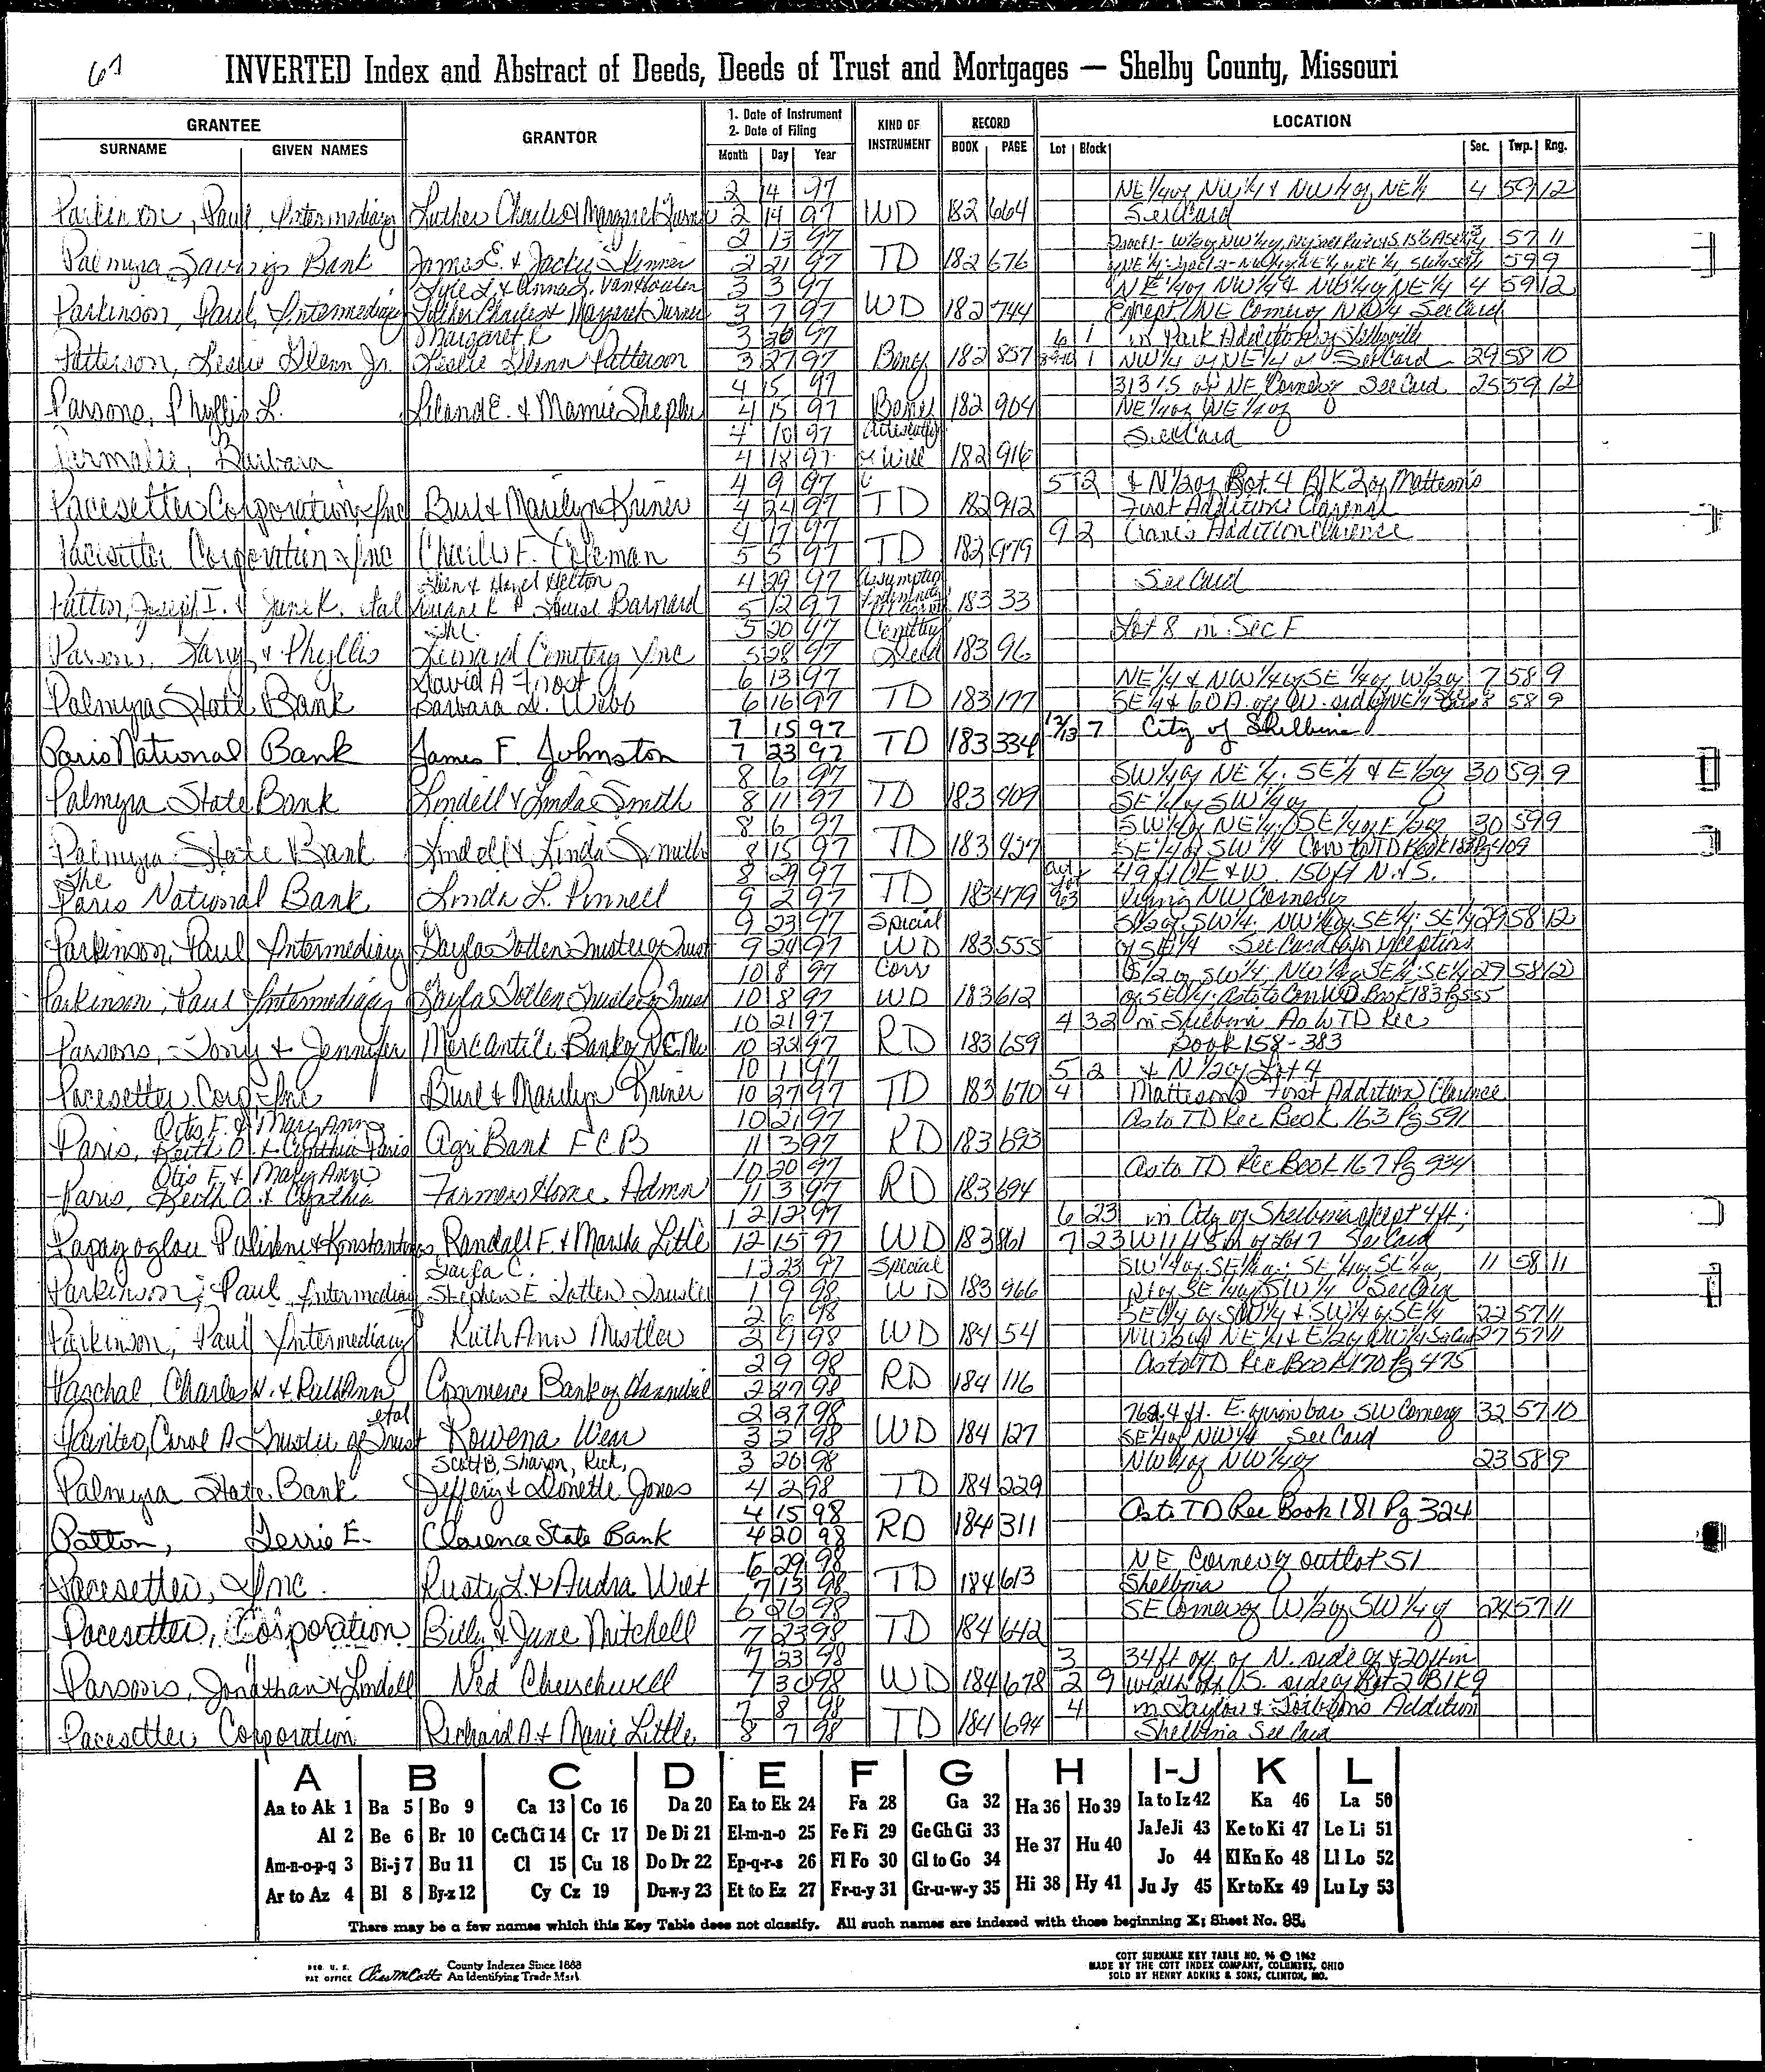 67
INVERTED Index and Abstract of Deeds, Deeds of Trust and Mortgages — Shelby County, Missouri
GRANTEE GRANTOR 1. Date of Instrument 2. Date of Filing KIND OF INSTRUMENT RECORD LOCATION
SURNAME GIVEN NAMES Month Day Year BOOK PAGE Lot Block Sec. Twp. Rng.
2 14 97 NE 1/4 of NW 1/4 & NW 1/4 of NE 1/4 4 59 12
Parkinson, Paul, Intermediary Luther Charles & Margaret Turner 2 14 97 WD 182 664 See Card
2 13 97 57 11
Palmyra Savings Bank James E. & Jacky Skinner 2 21 97 TD 182 676 59 9
Lyle L. & Anna L. VanHouten 3 3 97 NE 1/4 of NW 1/4 & NW 1/4 of NE 1/4 4 59 12
Parkinson, Paul, Intermediary Luther Charles & Margaret Turner 3 7 97 WD 182 744 Except NE Corner of NW 1/4 See Card
Margaret R 3 26 97 6 1 in Park Addition of Shelbyville
Patterson, Leslie Glenn Jr. Leslie Glenn Patterson 3 27 97 Benef 182 857 1 NW 1/4 of NE 1/4 of See Card 29 58 10
4 15 97 313' S of NE Corner of See Card 25 59 12
Parsons, Phyllis L. Leland E. & Mamie 4 15 97 Benef 182 904 NE 1/4 of NE 1/4 of
4 10 97 See Card
Barbara 4 18 97 & Will 182 916
4 9 97 5 2 & N 1/2 of Lot 4 Blk 2 of Matteson's
Pacesetter Corporation, Inc Burl & Marilyn Kriner 4 24 97 TD 182 912 First Addition Clarence
4 17 97 9 2 Addition Clarence
Pacesetter Corporation, Inc Charles F. Coleman 5 5 97 TD 182 979
Glen & Hazel Helton 4 29 97 Assumption See Card
Patton, Joseph I. & June K. etal Duane K & Louise Barnard 5 12 97 183 33
The 5 20 97 Cemetery Lot 8 in Sec F
Parsons, Larry & Phyllis Leonard Cemetery Inc 5 28 97 Deed 183 96
David A Frost 6 13 97 NE 1/4 & NW 1/4 of SE 1/4 of W 1/2 of 7 58 9
Palmyra State Bank Barbara L. Webb 6 16 97 TD 183 177 SE 1/4 & 60 A. off W. side of NE 1/4 8 58 9
7 15 97 12/13 7 City of Shelbina
Paris National Bank James F. Johnston 7 23 97 TD 183 334
8 6 97 SW 1/4 of NE 1/4; SE 1/4 & E 1/2 of 30 59 9
Palmyra State Bank Lindell & Linda Smith 8 11 97 TD 183 409 SE 1/4 of SW 1/4 of
8 6 97 SW 1/4 of NE 1/4; SE 1/4 of E 1/2 of 30 59 9
Palmyra State Bank Lindell & Linda Smith 8 15 97 TD 183 427 SE 1/4 of SW 1/4 Corr to TD Book 183 Pg 409
The 8 29 97 Out lot 49 ft E & W. 150 ft N. & S.
Paris National Bank Linda L. Pinnell 9 2 97 TD 183 479 63 lying NW Corner of
9 23 97 Special S 1/2 of SW 1/4; NW 1/4 of SE 1/4; SE 1/4 29 58 12
Parkinson, Paul Intermediary Gayla Totten Trustee of Trust 9 24 97 WD 183 555 of SE 1/4 See Card for exceptions
10 8 97 Corr S 1/2 of SW 1/4; NW 1/4 of SE 1/4; SE 1/4 29 58 12
Parkinson, Paul Intermediary Gayla Totten Trustee of Trust 10 8 97 WD 183 612 of SE 1/4. As to Corr WD Book 183 Pg 555
10 21 97 4 32 in Shelbina As to TD Rec
Parsons, Tony & Jennifer Mercantile Bank of N.E. Mo 10 23 97 RD 183 659 Book 158-383
10 1 97 5 2 & N 1/2 of Lot 4
Pacesetter Corp Inc Burl & Marilyn Kriner 10 27 97 TD 183 670 4 Matteson's First Addition Clarence
Otis F. & Mary Ann 10 21 97 As to TD Rec Book 163 Pg 591
Paris, Keith O. & Cynthia Paris Agri Bank FCB 11 3 97 RD 183 693
Otis F. & Mary Ann 10 20 97 As to TD Rec Book 167 Pg 934
Paris, Keith O. & Cynthia Farmers Home Admn 11 3 97 RD 183 694
12 12 97 6 23 in City of Shelbina except 4 ft;
Papayoglou & Konstantinos Randall F. & Marsha Little 12 15 97 WD 183 861 7 23 of Lot 7 See Card
Gayla C. 12 23 97 Special SW 1/4 of SE 1/4; SE 1/4 of SE 1/4 11 58 11
Parkinson, Paul Intermediary Stephen E Totten Trustee 1 9 98 WD 183 966 SE 1/4 of SW 1/4 See Card
2 6 98 SE 1/4 of SW 1/4 & SW 1/4 of SE 1/4 22 57 11
Parkinson, Paul Intermediary Ruth Ann Mustler 2 9 98 WD 184 54 NE 1/4 & E 1/2 of NW 1/4 See Card 27 57 11
2 9 98 As to TD Rec Book 170 Pg 475
Paschal, Charles W. & Ruth Ann Commerce Bank of Hannibal 2 27 98 RD 184 116
etal 2 27 98 762.4 ft. E. iron bar SW Corner of 32 57 10
Painter, Carol A Trustee of Trust Rowena Wear 3 2 98 WD 184 127 SE 1/4 of NW 1/4 See Card
Scott B, Sharon, Rick, 3 26 98 NW 1/4 of NW 1/4 of 23 58 9
Palmyra State Bank Jeffery & Donette Jones 4 2 98 TD 184 229
4 15 98 As to TD Rec Book 181 Pg 324
Patton, Terrie E. Clarence State Bank 4 20 98 RD 184 311
6 29 98 NE Corner of outlot 51
Pacesetter, Inc. Rusty L. & Audra Wilt 7 13 98 TD 184 613 Shelbina
6 26 98 SE Corner of W 1/2 of SW 1/4 of 24 57 11
Pacesetter, Corporation Billy & Jane Mitchell 7 23 98 TD 184 642
7 23 98 3 34 ft off of N. side of & 20 ft in
Parsons, Jonathan & Lindell Ned Churchwell 7 30 98 WD 184 678 2 9 width off S. side of Lot 2 Blk 9
7 8 98 4 in Taylor & Addition
Pacesetter Corporation Richard A. & Marie Little 8 7 98 TD 184 694 Shelbina See Card
A B C D E F G H I-J K L
Aa to Ak 1 Ba 5 Bo 9 Ca 13 Co 16 Da 20 Ea to Ek 24 Fa 28 Ga 32 Ha 36 Ho 39 Ia to Iz 42 Ka 46 La 50
Al 2 Be 6 Br 10 Ce Ch Ci 14 Cr 17 De Di 21 El-m-n-o 25 Fe Fi 29 Ge Gh Gi 33 He 37 Hu 40 Ja Je Ji 43 Ke to Ki 47 Le Li 51
Am-n-o-p-q 3 Bi-j 7 Bu 11 Cl 15 Cu 18 Do Dr 22 Ep-q-r-s 26 Fl Fo 30 Gl to Go 34 Jo 44 Kl Kn Ko 48 Ll Lo 52
Ar to Az 4 Bl 8 By-z 12 Cy Cz 19 Du-w-y 23 Et to Ez 27 Fr-u-y 31 Gr-u-w-y 35 Hi 38 Hy 41 Ju Jy 45 Kr to Kz 49 Lu Ly 53
There may be a few names which this Key Table does not classify. All such names are indexed with those beginning X; Sheet No. 95.
REG. U. S. PAT OFFICE County Indexes Since 1888 An Identifying Trade Mark
COTT SURNAME KEY TABLE NO. 96 © 1962
MADE BY THE COTT INDEX COMPANY, COLUMBUS, OHIO
SOLD BY HENRY ADKINS & SONS, CLINTON, MO.